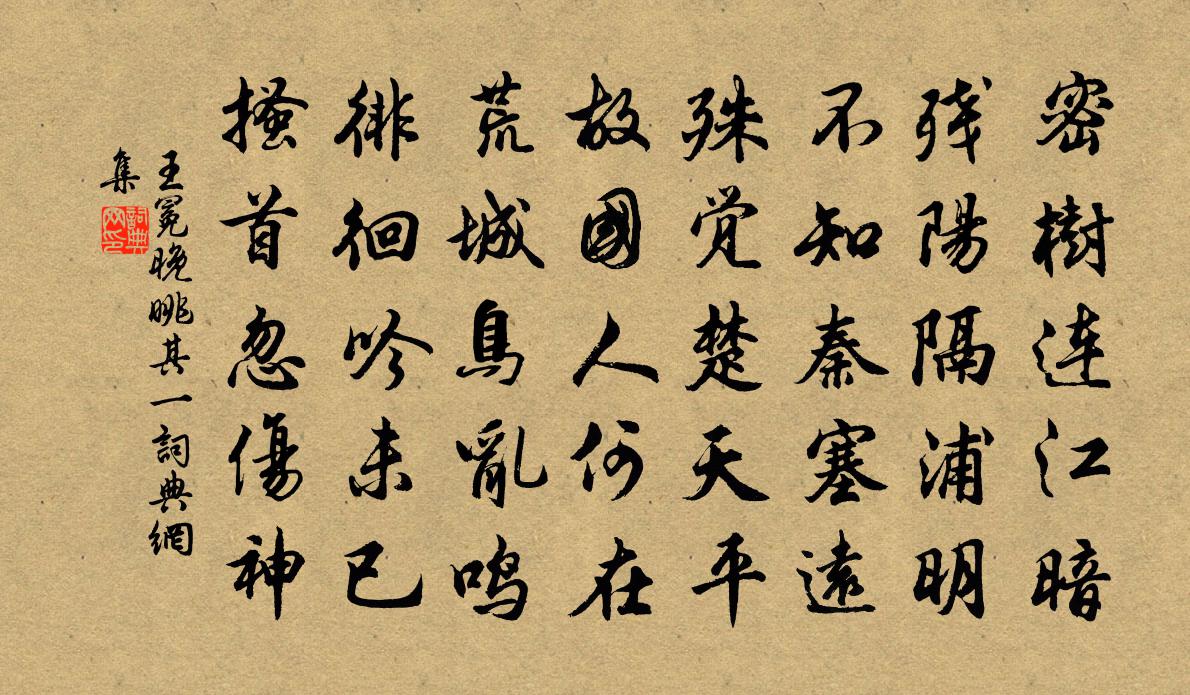 密樹连江暗
残陽隔浦明
不知秦塞遠
殊觉楚天平
故國人何在
荒城鳥亂鸣
徘徊吟未已
搔首忽傷神
王冕晚眺其一詞典網
集
詞典
网印